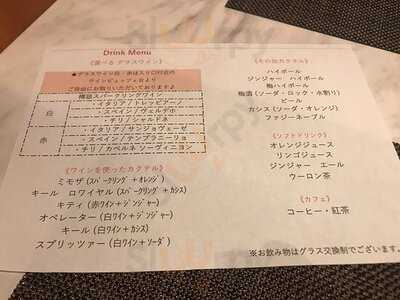 Drink Menu
《選べる グラスワイン》
★グラスワイン白・赤は入り口付近の
ワインビュッフェ台より
ご自由にお取りいただいております♪
樽詰スパークリングワイン
白
・イタリア/トレッビアーノ
・スペイン/ヴェルデホ
・チリ/シャルドネ
赤
・イタリア/サンジョヴェーゼ
・スペイン/テンプラニーリョ
・チリ/カベルネ ソーヴィニヨン
《ワインを使ったカクテル》
ミモザ (スパークリング+オレンジ)
キール ロワイヤル (スパークリング+カシス)
キティ (赤ワイン+ジンジャー)
オペレーター (白ワイン+ジンジャー)
キール (白ワイン+カシス)
スプリッツァー (白ワイン+ソーダ)
《その他カクテル》
ハイボール
ジンジャー ハイボール
梅ハイボール
梅酒 (ソーダ・ロック・水割り)
ビール
カシス (ソーダ・オレンジ)
ファジーネーブル
《ソフトドリンク》
オレンジジュース
リンゴジュース
ジンジャー エール
ウーロン茶
《カフェ》
コーヒー・紅茶
※お飲み物はグラス交換制でございます。